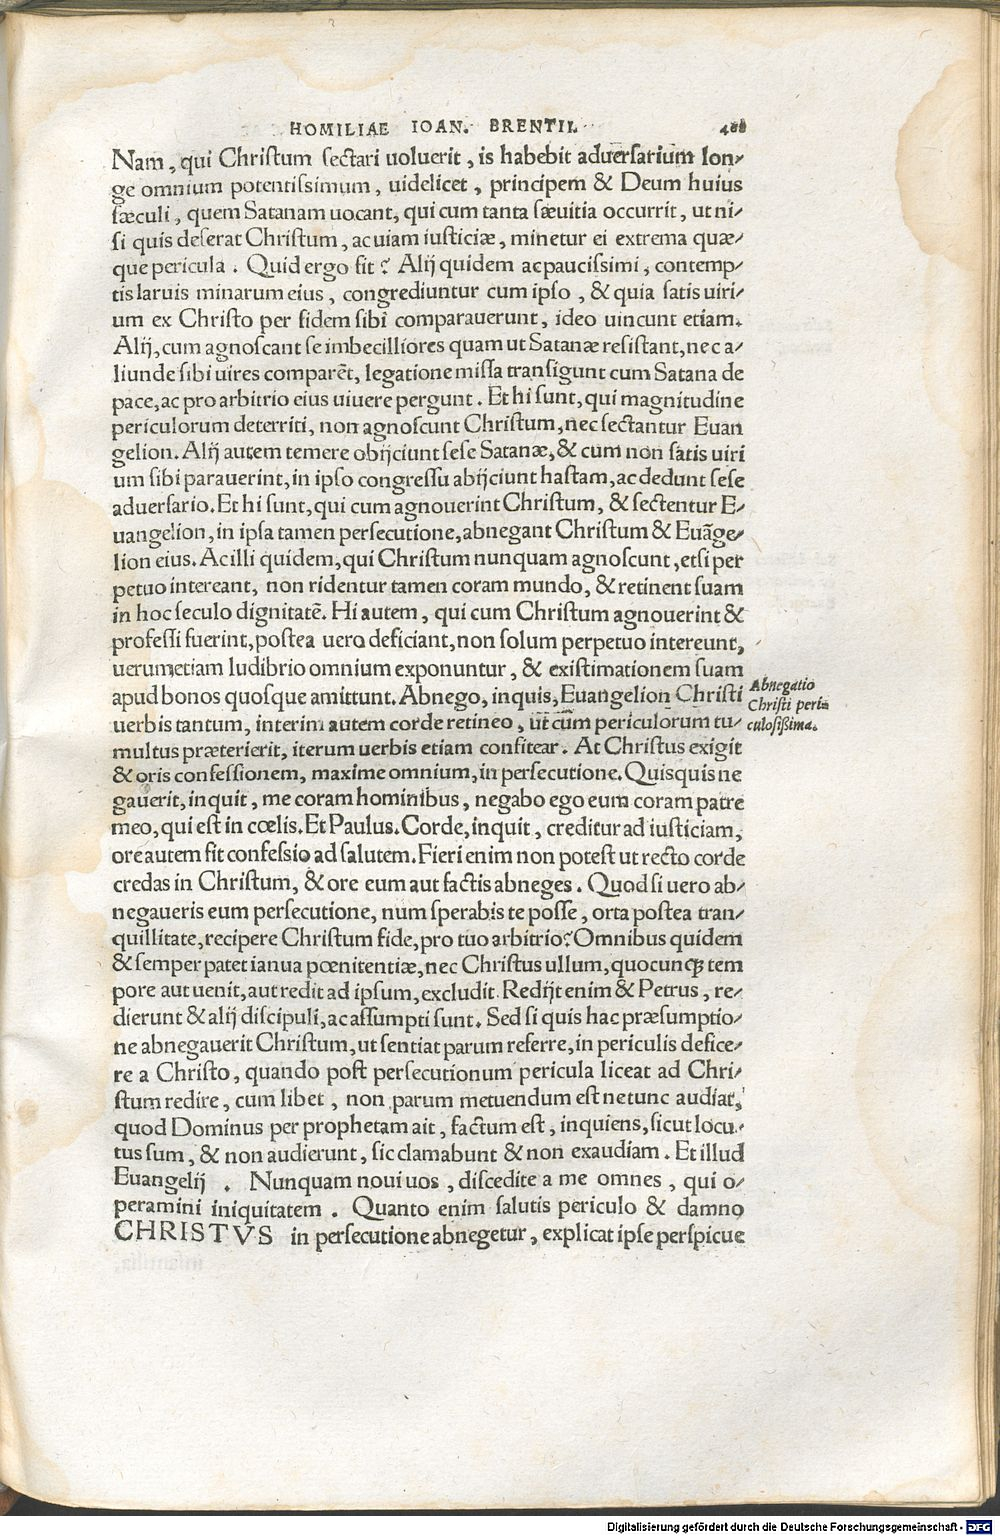 HOMILIAE IOAN. BRENTII.
Nam, qui Christum sectari uoluerit, is habebit aduersarium lon-
ge omnium potentissimum, uidelicet, principem & Deum huius
sæculi, quem Satanam uocant, qui cum tanta sæuitia occurrit, ut ni-
si quis deserat Christum, ac uiam iusticiæ, minetur ei extrema quæ-
que pericula. Quid ergo fit? Alij quidem ac paucissimi, contemp-
tis laruis minarum eius, congrediuntur cum ipso, & quia satis uiri-
um ex Christo per fidem sibi comparauerunt, ideo uincunt etiam.
Alij, cum agnoscant se imbecilliores quam ut Satanæ resistant, nec a-
liunde sibi uires comparẽt, legatione missa transigunt cum Satana de
pace, ac pro arbitrio eius uiuere pergunt. Et hi sunt, qui magnitudine
periculorum deterriti, non agnoscunt Christum, nec sectantur Euan
gelion. Alij autem temere obijciunt sese Satanæ, & cum non satis uiri
um sibi parauerint, in ipso congressu abijciunt hastam, ac dedunt sese
aduersario. Et hi sunt, qui cum agnouerint Christum, & sectentur E-
uangelion, in ipsa tamen persecutione, abnegant Christum & Euãge-
lion eius. Ac illi quidem, qui Christum nunquam agnoscunt, etsi per
petuo intereant, non ridentur tamen coram mundo, & retinent suam
in hoc seculo dignitatẽ. Hi autem, qui cum Christum agnouerint &
professi fuerint, postea uero deficiant, non solum perpetuo intereunt,
uerum etiam ludibrio omnium exponuntur, & existimationem suam
apud bonos quosque amittunt. Abnego, inquis, Euangelion Christi
uerbis tantum, interim autem corde retineo, ut cum periculorum tu-
multus præterierit, iterum uerbis etiam confitear. At Christus exigit
& oris confessionem, maxime omnium, in persecutione. Quisquis ne
gauerit, inquit, me coram hominibus, negabo ego eum coram patre
meo, qui est in cœlis. Et Paulus. Corde, inquit, creditur ad iusticiam,
ore autem fit confessio ad salutem. Fieri enim non potest ut recto corde
credas in Christum, & ore eum aut factis abneges. Quod si uero ab-
negaueris eum persecutione, num sperabis te posse, orta postea tran-
quillitate, recipere Christum fide, pro tuo arbitrio? Omnibus quidem
& semper patet ianua pœnitentiæ, nec Christus ullum, quocunq; tem
pore aut uenit, aut redit ad ipsum, excludit. Redijt enim & Petrus, re-
dierunt & alij discipuli, ac assumpti sunt. Sed si quis hac præsumptio-
ne abnegauerit Christum, ut sentiat parum referre, in periculis defice-
re a Christo, quando post persecutionum pericula liceat ad Chri-
stum redire, cum libet, non parum metuendum est ne tunc audiat,
quod Dominus per prophetam ait, factum est, inquiens, sicut locu-
tus sum, & non audierunt, sic clamabunt & non exaudiam. Et illud
Euangelij. Nunquam noui uos, discedite a me omnes, qui o-
peramini iniquitatem. Quanto enim salutis periculo & damno
CHRISTVS in persecutione abnegetur, explicat ipse perspicue
Abnegatio
Christi peri-
culosissima.
Digitalisierung gefördert durch die Deutsche Forschungsgemeinschaft - DFG